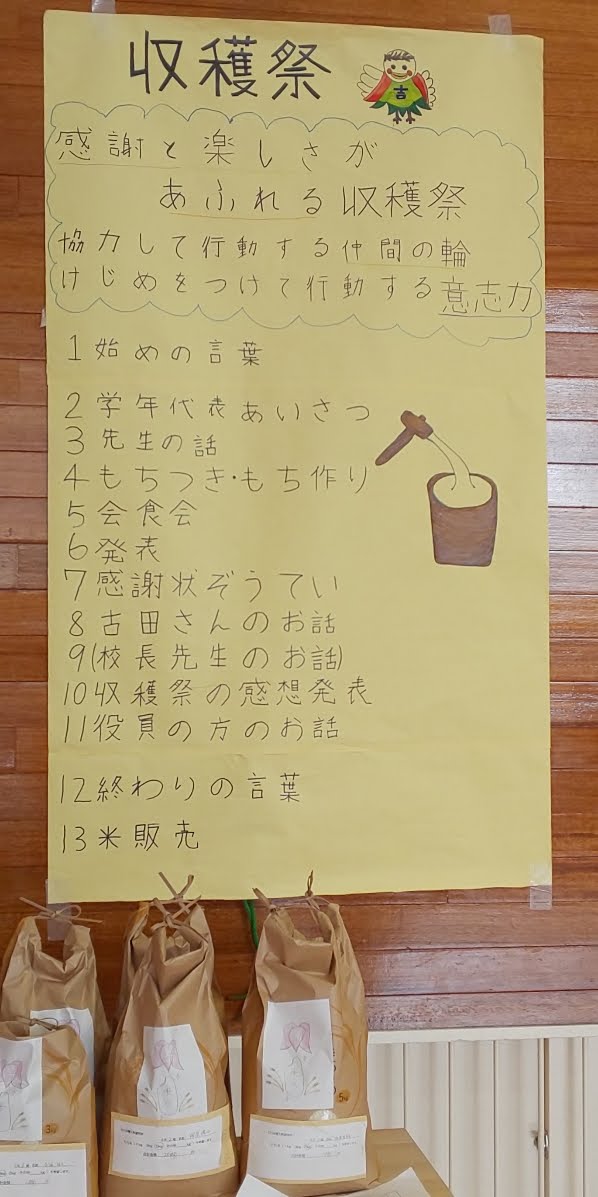 収穫祭
吉
感謝と楽しさが
あふれる収穫祭
協力して行動する仲間の輪
けじめをつけて行動する意志力
1 始めの言葉
2 学年代表あいさつ
3 先生の話
4 もちつき・もち作り
5 会食会
6 発表
7 感謝状ぞうてい
8 古田さんのお話
9 (校長先生のお話)
10 収穫祭の感想発表
11 役員の方のお話
12 終わりの言葉
13 米販売
3kg
5kg